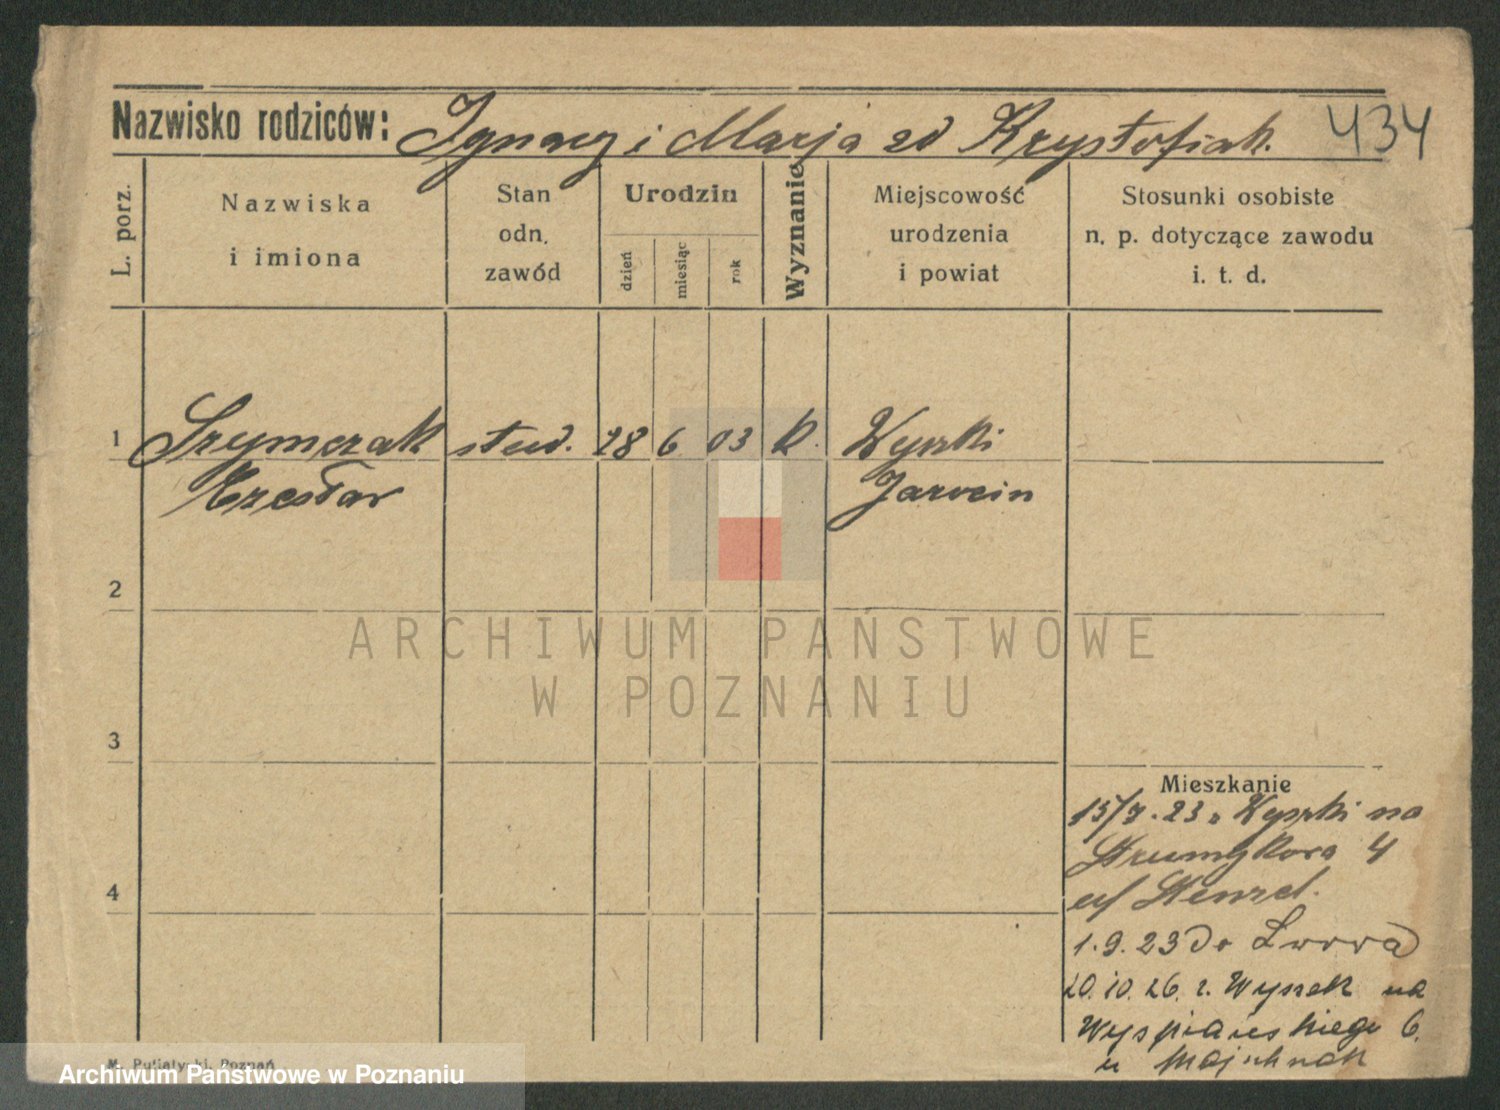 Nazwisko rodziców: Ignacy i Marja zd Krystofiak. 434
L. porz.
Nazwiska
i imiona
Stan
odn.
zawód
Urodzin
dzień
miesiąc
rok
Wyznanie
Miejscowość
urodzenia
i powiat
Stosunki osobiste
n. p. dotyczące zawodu
i. t. d.
1 Szymczak stud. 28 6 03 k. Wyszki
Czesław Jarocin
2
ARCHIWUM PAŃSTWOWE
W POZNANIU
3
Mieszkanie
15/7.23 z Wyszki na
Strumykowa 4
4
1.9.23 do Lwowa
20.10.26. z. Wyszek na
Wyspiańskiego 6.
u
M. Putiatycki, Poznań
Archiwum Państwowe w Poznaniu